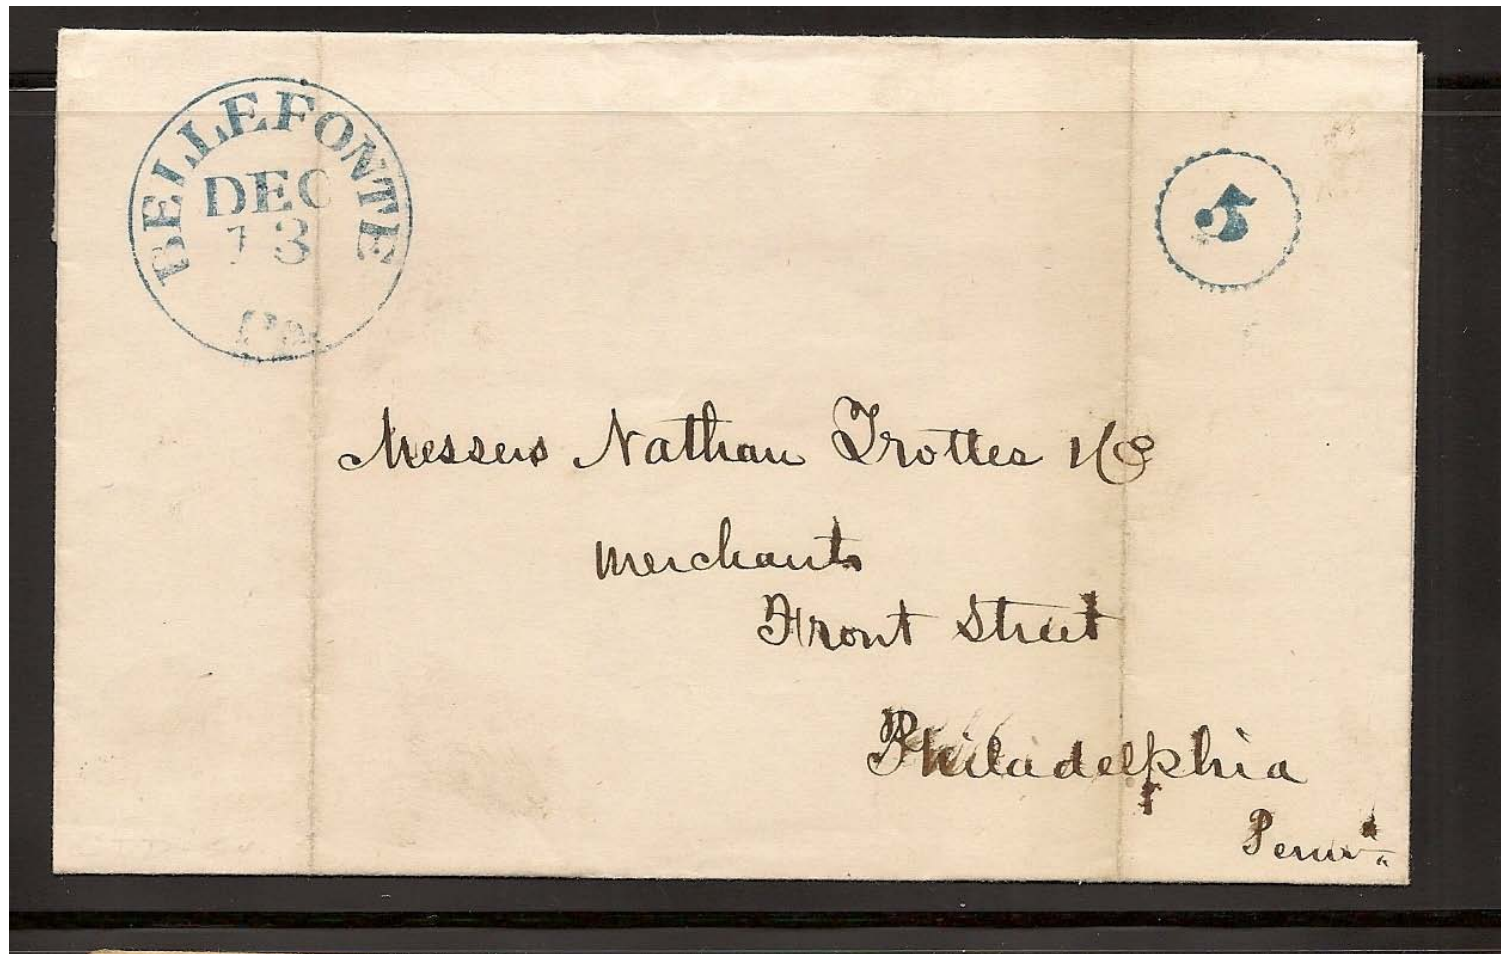 BELLEFONTE
DEC
13
Pa.
5
Messers Nathan Trotter & Co
Merchants
Front Street
Philadelphia
Penna